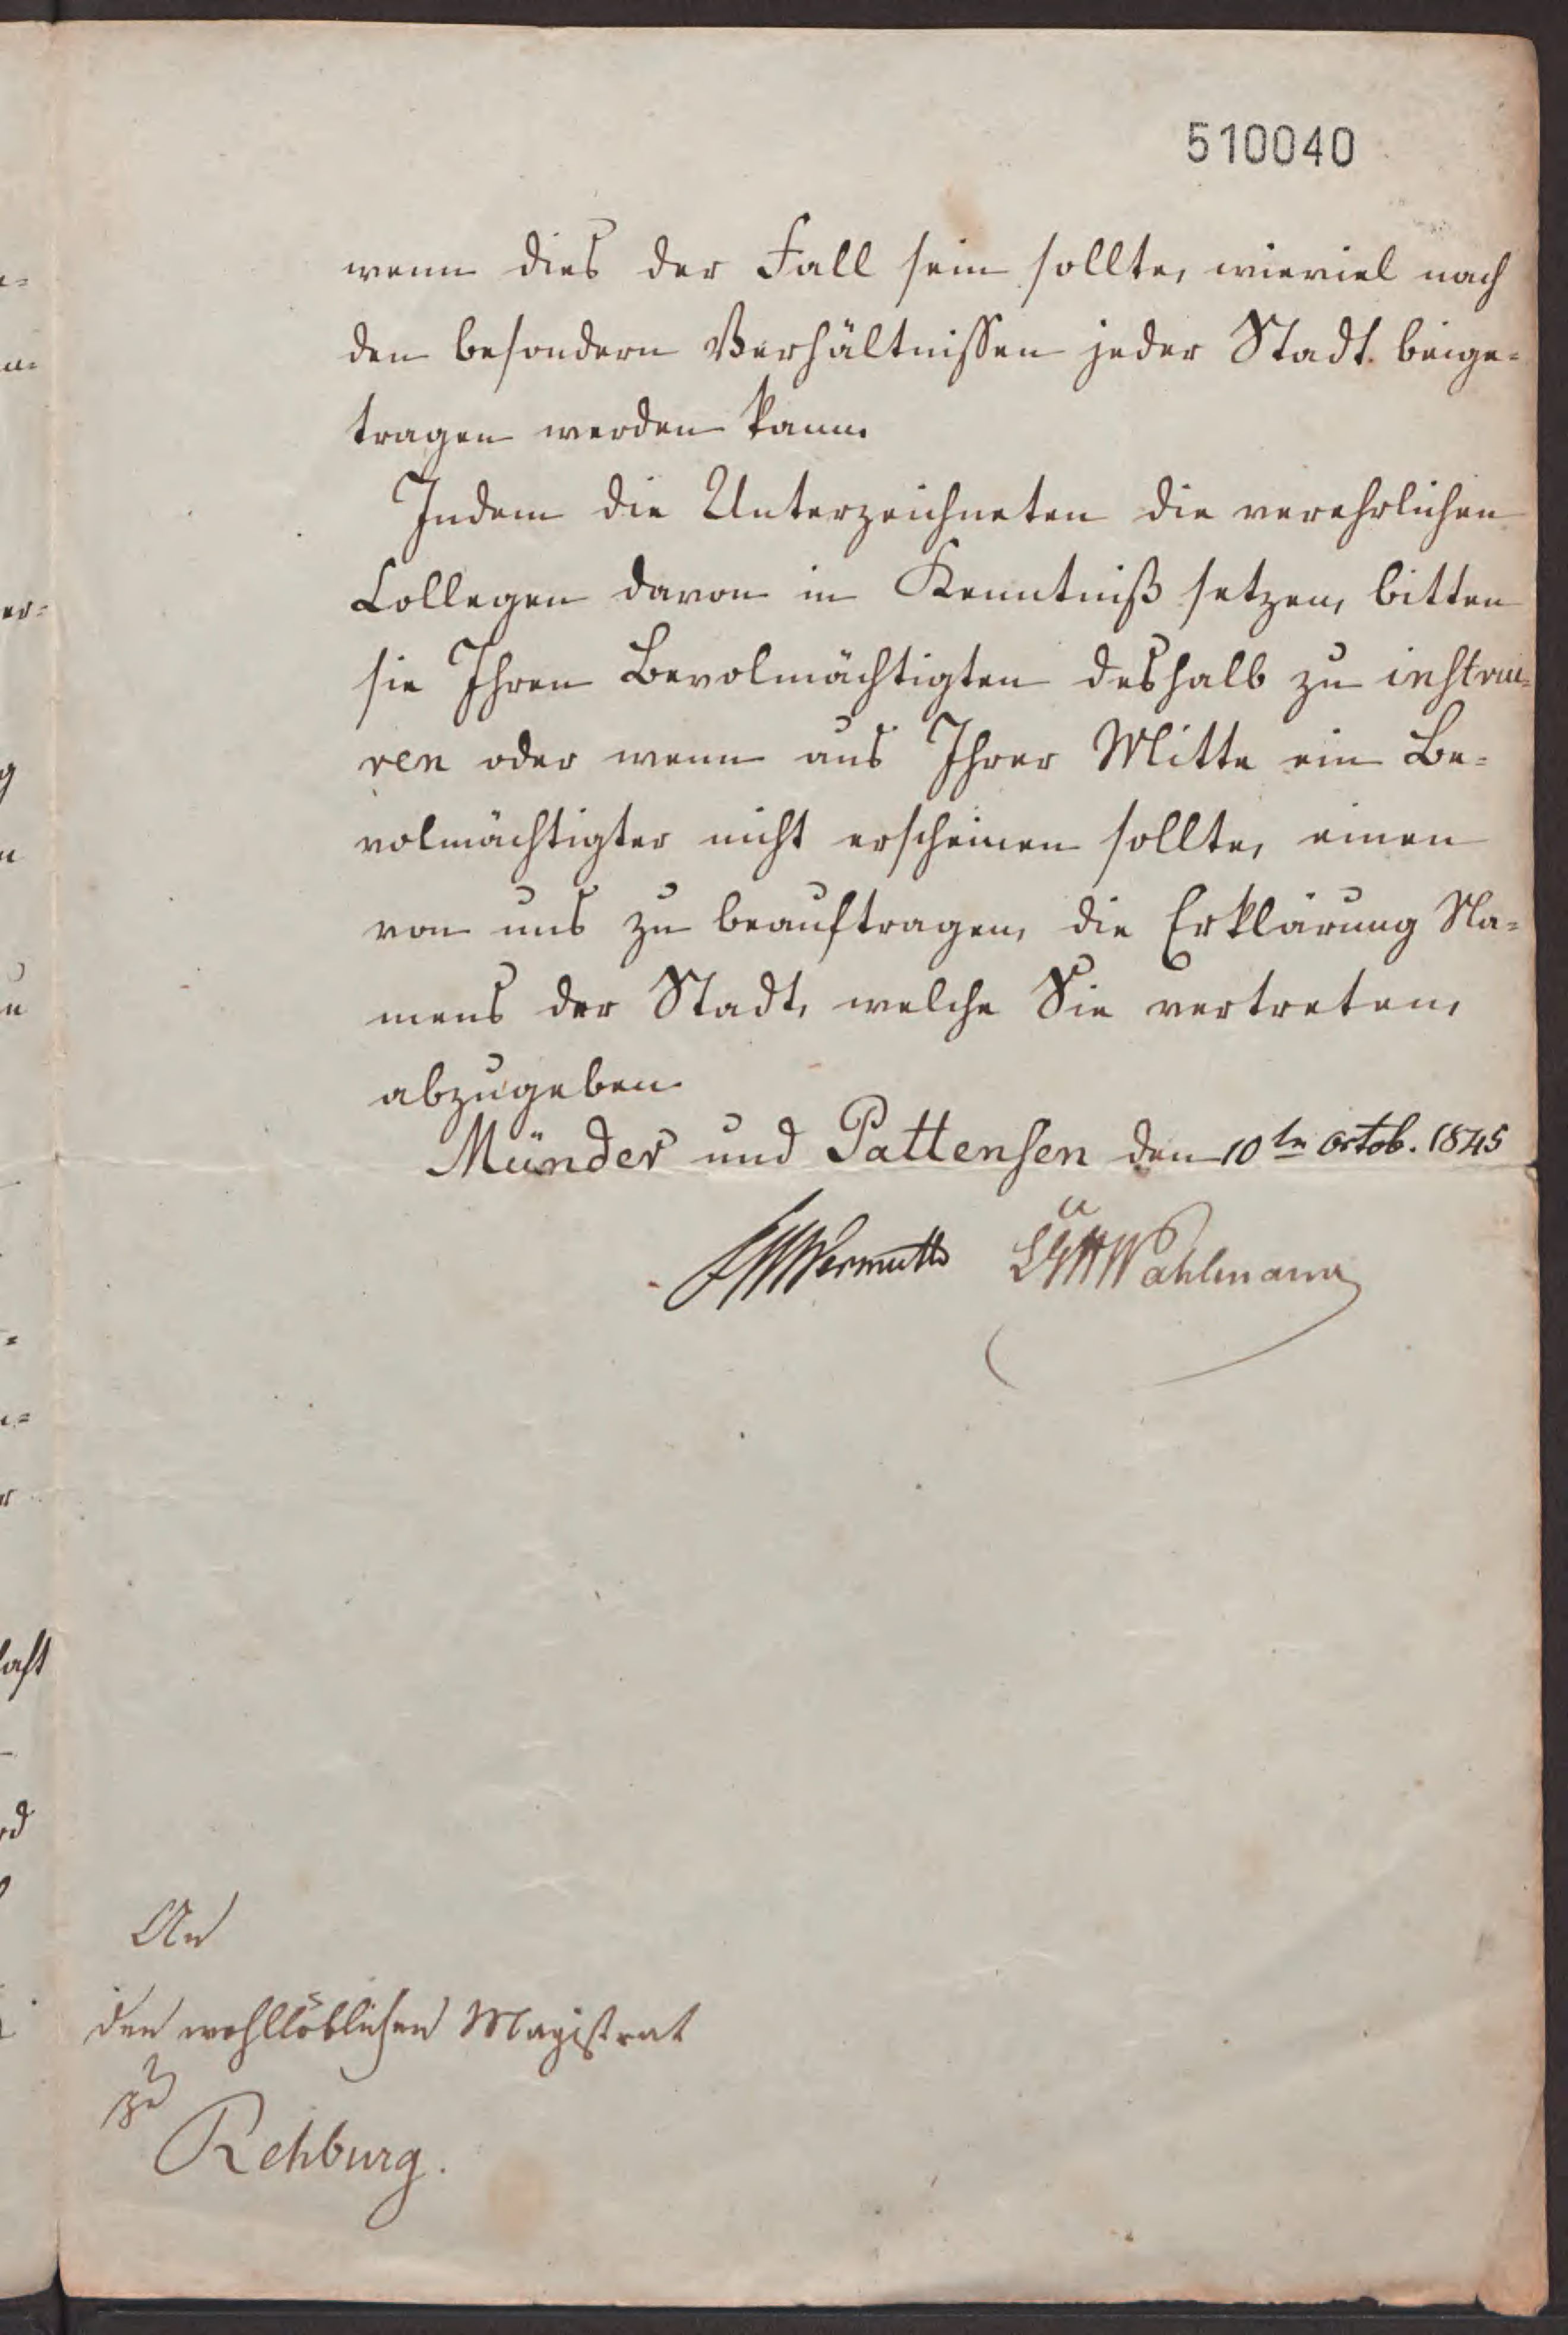 510040
wenn dies der Fall sein sollte, wieviel nach
den besondern Verhältnissen jeder Stadt beige=
tragen werden kann.
Indem die Unterzeichneten die verehrlichen
Collegen davon in Kenntniß setzen, bitten
sie Ihren Bevolmächtigten deshalb zu instrui=
ren oder wenn aus Ihrer Mitte ein Be=
volmächtigter nicht erscheinen sollte, einen
von uns zu beauftragen, die Erklärung Na=
mens der Stadt, welche Sie vertreten,
abzugeben
Münder und Pattensen den 10ten Octob. 1845
Wermuth Wahlmann
An
den wohllöblichen Magistrat
zu
Rehburg.